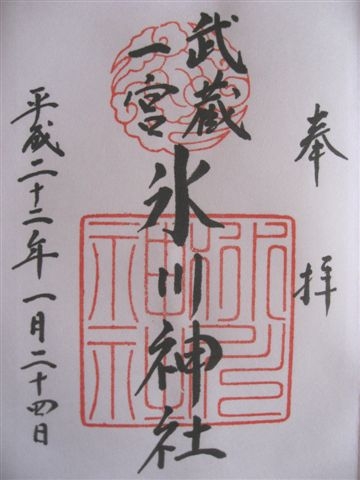 奉拝
武蔵
一宮
氷川神社
平成二十二年一月二十四日
氷川
神社